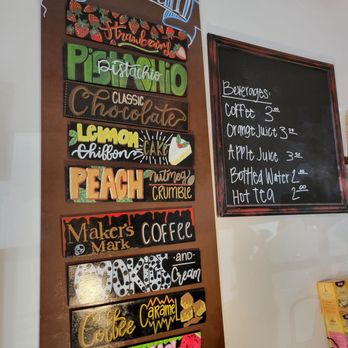 Strawberry
PISTACHIO
Pistachio
CLASSIC
Chocolate
LEMON
Chiffon CAKE
PEACH Nutmeg
CRUMBLE
MAKER'S
Mark COFFEE
COOKIES and
Cream
Coffee CARAMEL
Beverages:
Coffee 3.00
Orange Juice 3.00
Apple Juice 3.50
Bottled Water 2.00
Hot Tea 2.00